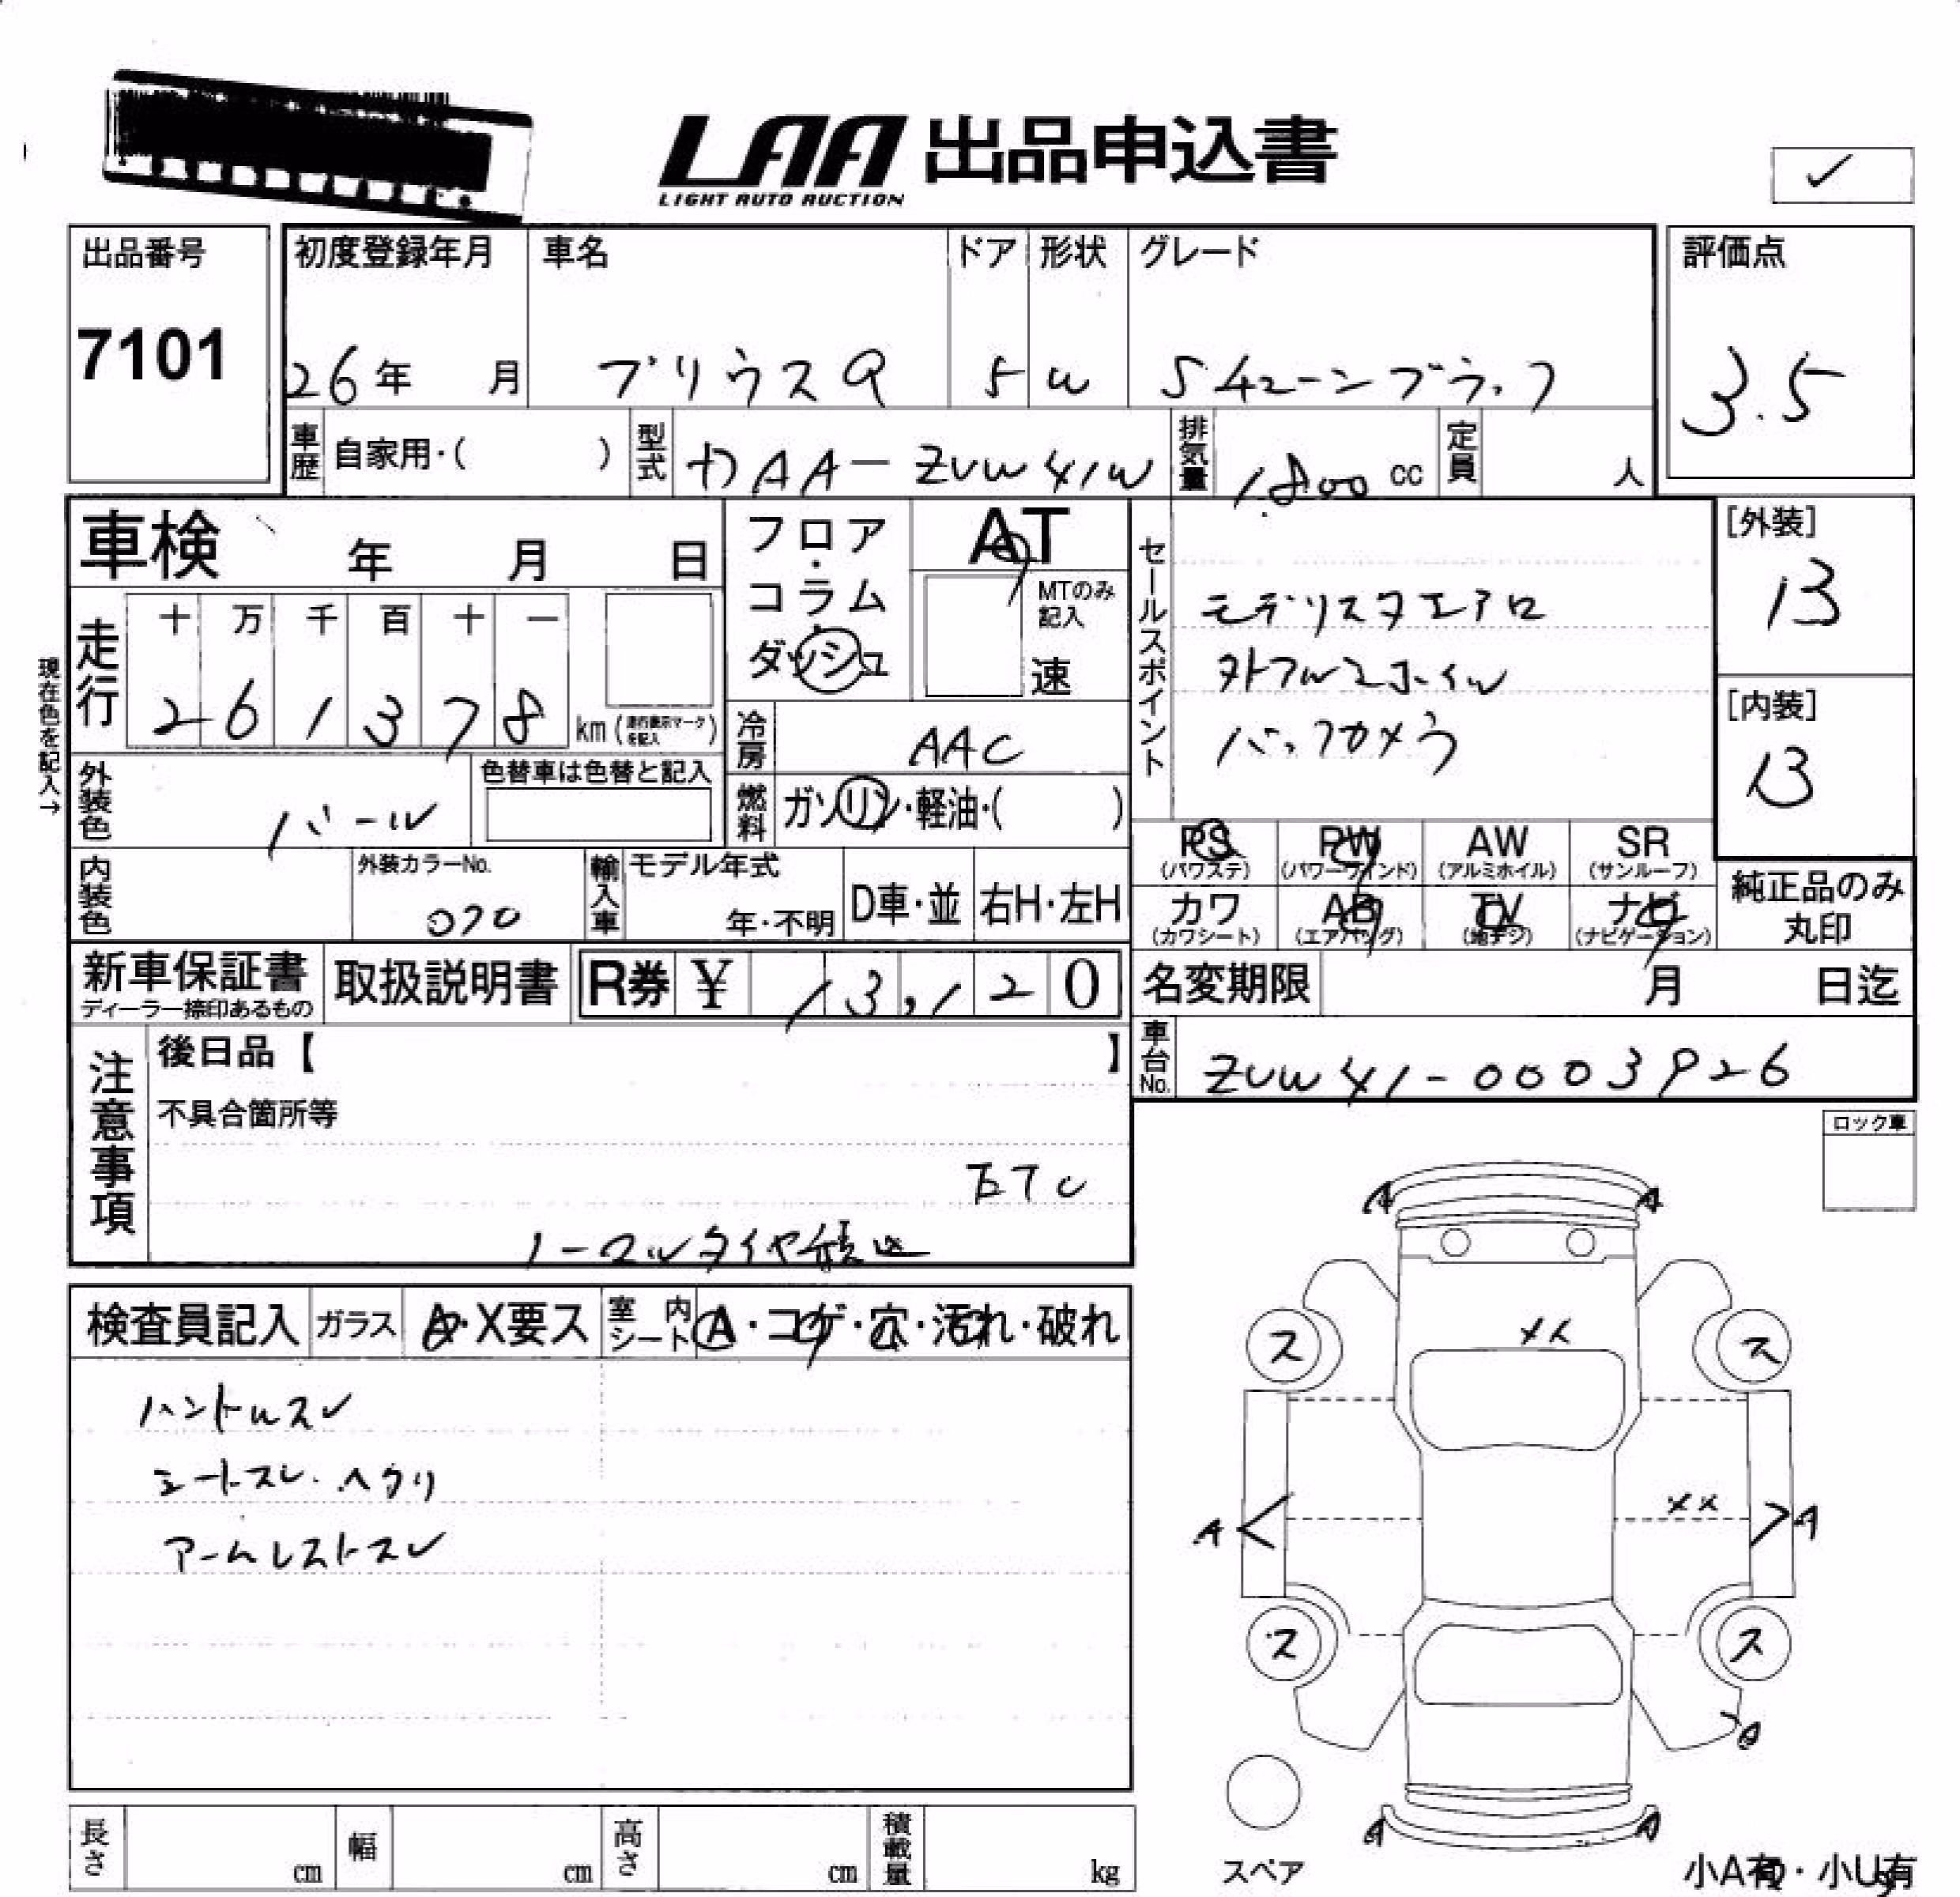 LAA 出品申込書
LIGHT AUTO AUCTION
✓
出品番号
7101
初度登録年月 車名 ドア 形状 グレード
26年 月 プリウスα 5 W Sチューンブラック
評価点
3.5
車歴 自家用・( ) 型式 DAA-ZVW41W 排気量 1800 cc 定員 人
車検 年 月 日
フロア・コラム・ダッシュ
AT
MTのみ記入
速
走行
十 万 千 百 十 一
2 6 1 3 7 8 km (走行表示マークを記入)
現在色を記入→
冷房 AAC
外装色 パール
色替車は色替と記入
燃料 ガソリン・軽油・( )
セールスポイント
モデリスタエアロ
外アルミホイル
バックカメラ
[外装]
13
[内装]
13
PS (パワステ) PW (パワーウインド) AW (アルミホイル) SR (サンルーフ)
カワ (カワシート) AB (エアバッグ) TV (地デジ) ナビ (ナビゲーション)
純正品のみ丸印
内装色
外装カラーNo.
070
輸入車 モデル年式
年・不明 D車・並 右H・左H
新車保証書
ディーラー捺印あるもの
取扱説明書
R券 ¥ 13,120
名変期限 月 日迄
車台No. ZVW41-0003926
注意事項
後日品【 】
不具合箇所等
ETC
ノーマルタイヤ積込
ロック車
検査員記入 ガラス A・X要ス 室内シート A・コゲ・穴・汚れ・破れ
ハンドルスレ
シートスレ・ヘタリ
アームレストスレ
A A
XX
ス ス
XX
A A
ス ス
A A
スペア
小A有・小U有
長さ cm 幅 cm 高さ cm 積載量 kg